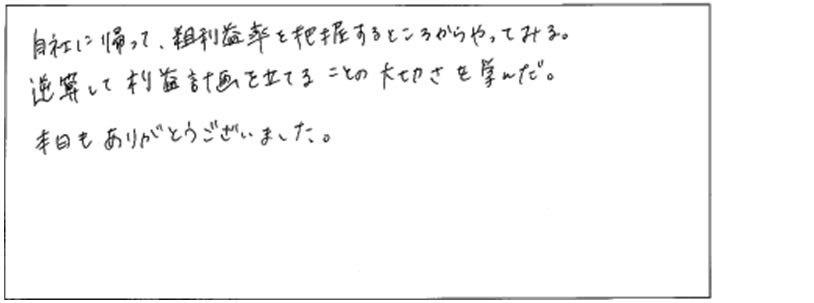 自社に帰って、粗利益率を把握するところからやってみる。
逆算して利益計画を立てることの大切さを学んだ。
本日もありがとうございました。